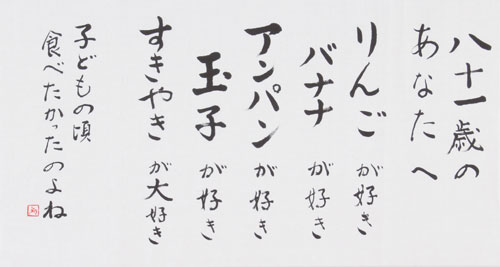 八十一歳の
あなたへ
りんごが好き
バナナが好き
アンパンが好き
玉子が好き
すきやきが大好き
子どもの頃
食べたかったのよね